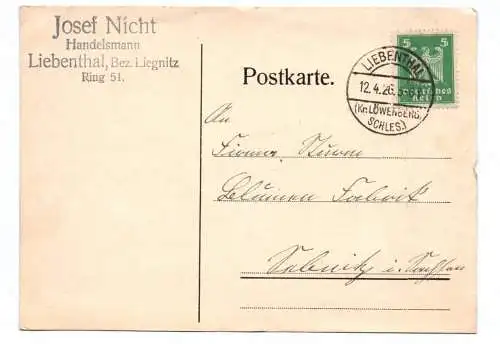 Josef Nicht
Handelsmann
Liebenthal, Bez. Liegnitz
Ring 51.
Postkarte.
5 5
Deutsches
Reich
LIEBENTHAL
12.4.26.
(Kr. LÖWENBERG,
SCHLES.)
An
Firma Sturm
Blumen Fabrik
Sebnitz i. Sachsen